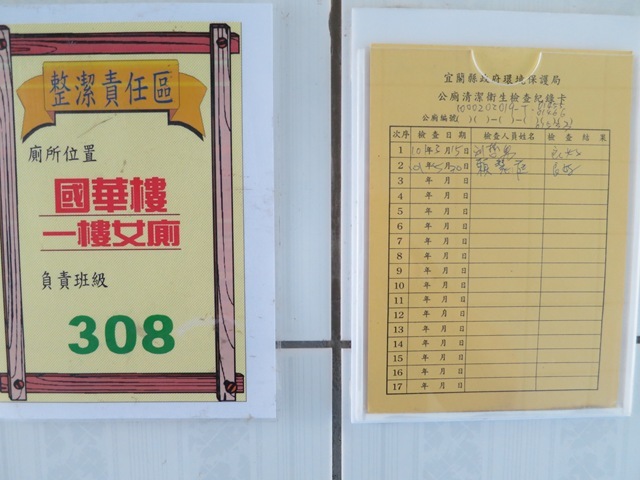 整潔責任區
廁所位置
國華樓
一樓女廁
負責班級
308
宜蘭縣政府環境保護局
公廁清潔衛生檢查紀錄卡
公廁編號( )( )-( )-(
次序 檢查日期 檢查人員姓名 檢查結果
1 年3月15日 良好
2 年5月20日 良好
3 年 月 日
4 年 月 日
5 年 月 日
6 年 月 日
7 年 月 日
8 年 月 日
9 年 月 日
10 年 月 日
11 年 月 日
12 年 月 日
13 年 月 日
14 年 月 日
15 年 月 日
16 年 月 日
17 年 月 日